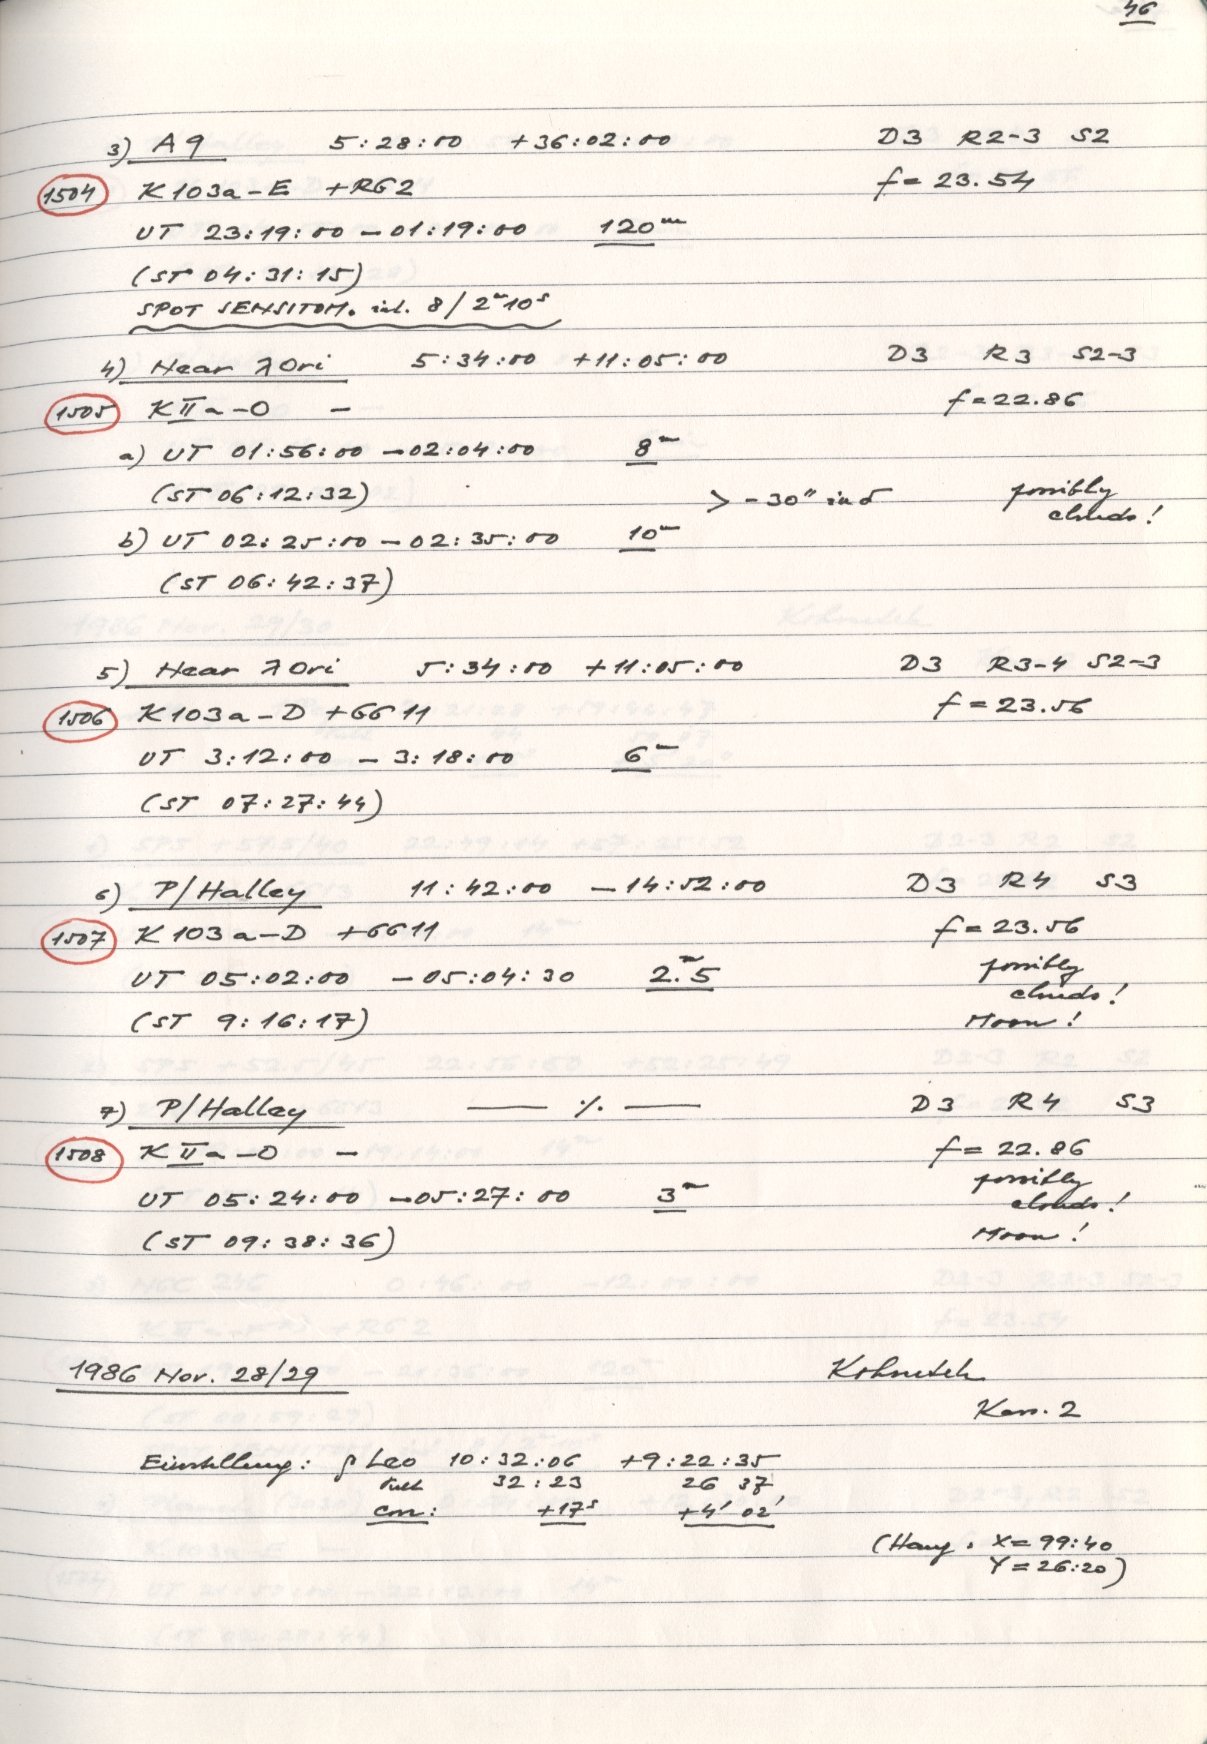 46
3) A9 5:28:00 +36:02:00 D3 R2-3 S2
1504 K 103a-E +RG2 f = 23.54
UT 23:19:00 - 01:19:00 120m
(ST 04:31:15)
SPOT SENSITOM. incl. 8 / 2m10s
4) Near λ Ori 5:34:00 +11:05:00 D3 R3 S2-3
1505 K IIa-O - f = 22.86
a) UT 01:56:00 - 02:04:00 8m
(ST 06:12:32) > -30" in δ possibly
clouds!
b) UT 02:25:00 - 02:35:00 10m
(ST 06:42:37)
5) Near λ Ori 5:34:00 +11:05:00 D3 R3-4 S2-3
1506 K 103a-D +GG11 f = 23.56
UT 3:12:00 - 3:18:00 6m
(ST 07:27:44)
6) P/Halley 11:42:00 -14:52:00 D3 R4 S3
1507 K 103a-D +GG11 f = 23.56
UT 05:02:00 - 05:04:30 2.m5 possibly
clouds!
(ST 9:16:17) Moon!
7) P/Halley —— ·/. —— D3 R4 S3
1508 K IIa-O - f = 22.86
UT 05:24:00 - 05:27:00 3m possibly
clouds!
(ST 09:38:36) Moon!
1986 Nov. 28/29 Kohoutek
Kass. 2
Einstellung: ρ Leo 10:32:06 +9:22:35
32:23 26 37
corr: +17s +4' 02'
X = 99:40
Y = 26:20)